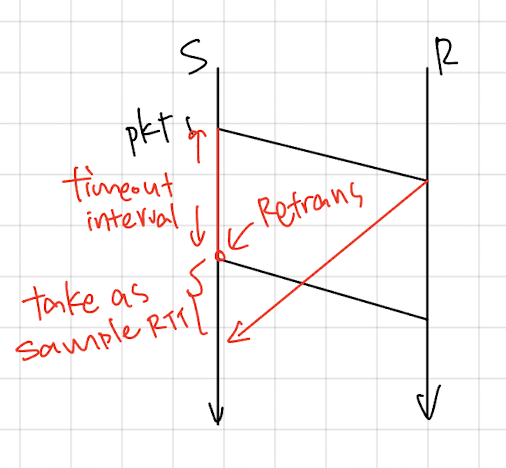 S
R
pkt
timeout
interval
Retrans
take as
sample RTT